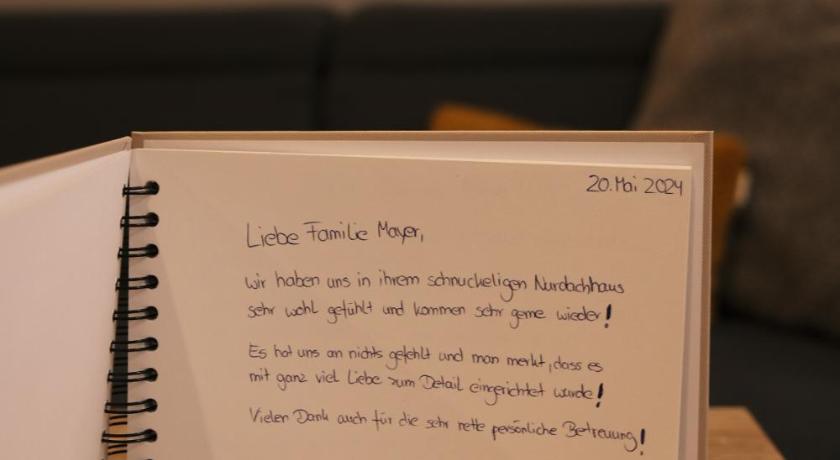 20. Mai 2024
Liebe Familie Mayer,
wir haben uns in ihrem schnuckeligen Nurdachhaus
sehr wohl gefühlt und kommen sehr gerne wieder!
Es hat uns an nichts gefehlt und man merkt, dass es
mit ganz viel Liebe zum Detail eingerichtet wurde!
Vielen Dank auch für die sehr nette persönliche Betreuung!